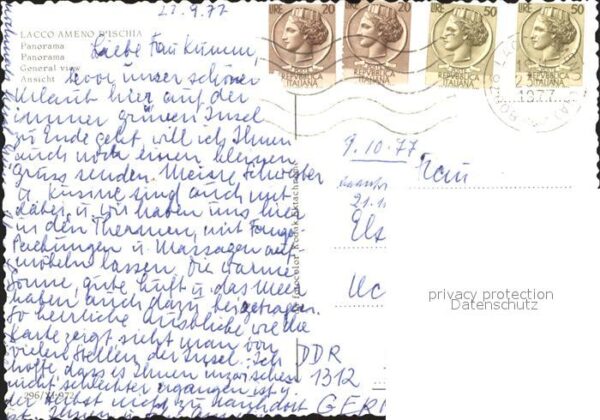 23.9.77
LACCO AMENO D'ISCHIA
Panorama
Panorama
General view
Ansicht
Liebe Frau Kumm,
bevor unser schöner
Urlaub hier auf der
immer grünen Insel
zu Ende geht, will ich Ihnen
auch noch einen kleinen
Gruss senden. Meine Schwester
u. Kusine sind auch mit
dabei, u. wir haben uns hier
in den Thermen mit Fango
Packungen u. Massagen auf
möbeln lassen. Die warme
Sonne, gute Luft u. das Meer
haben auch dazu beigetragen.
So herrliche Ausblicke wie die
Karte zeigt sieht man von
vielen Stellen der Insel. Ich
hoffe, dass es Ihnen inzwischen
nicht schlechter ergangen ist u.
der Herbst nicht zu
LIRE 20
REPUBBLICA
ITALIANA
20
REPUBBLICA
ITALIANA
LIRE 50
REPUBBLICA
ITALIANA
50
REPUBBLICA
ITALIANA
9.10.77
Frau
Els
DDR
1312
GER
privacy protection
Datenschutz